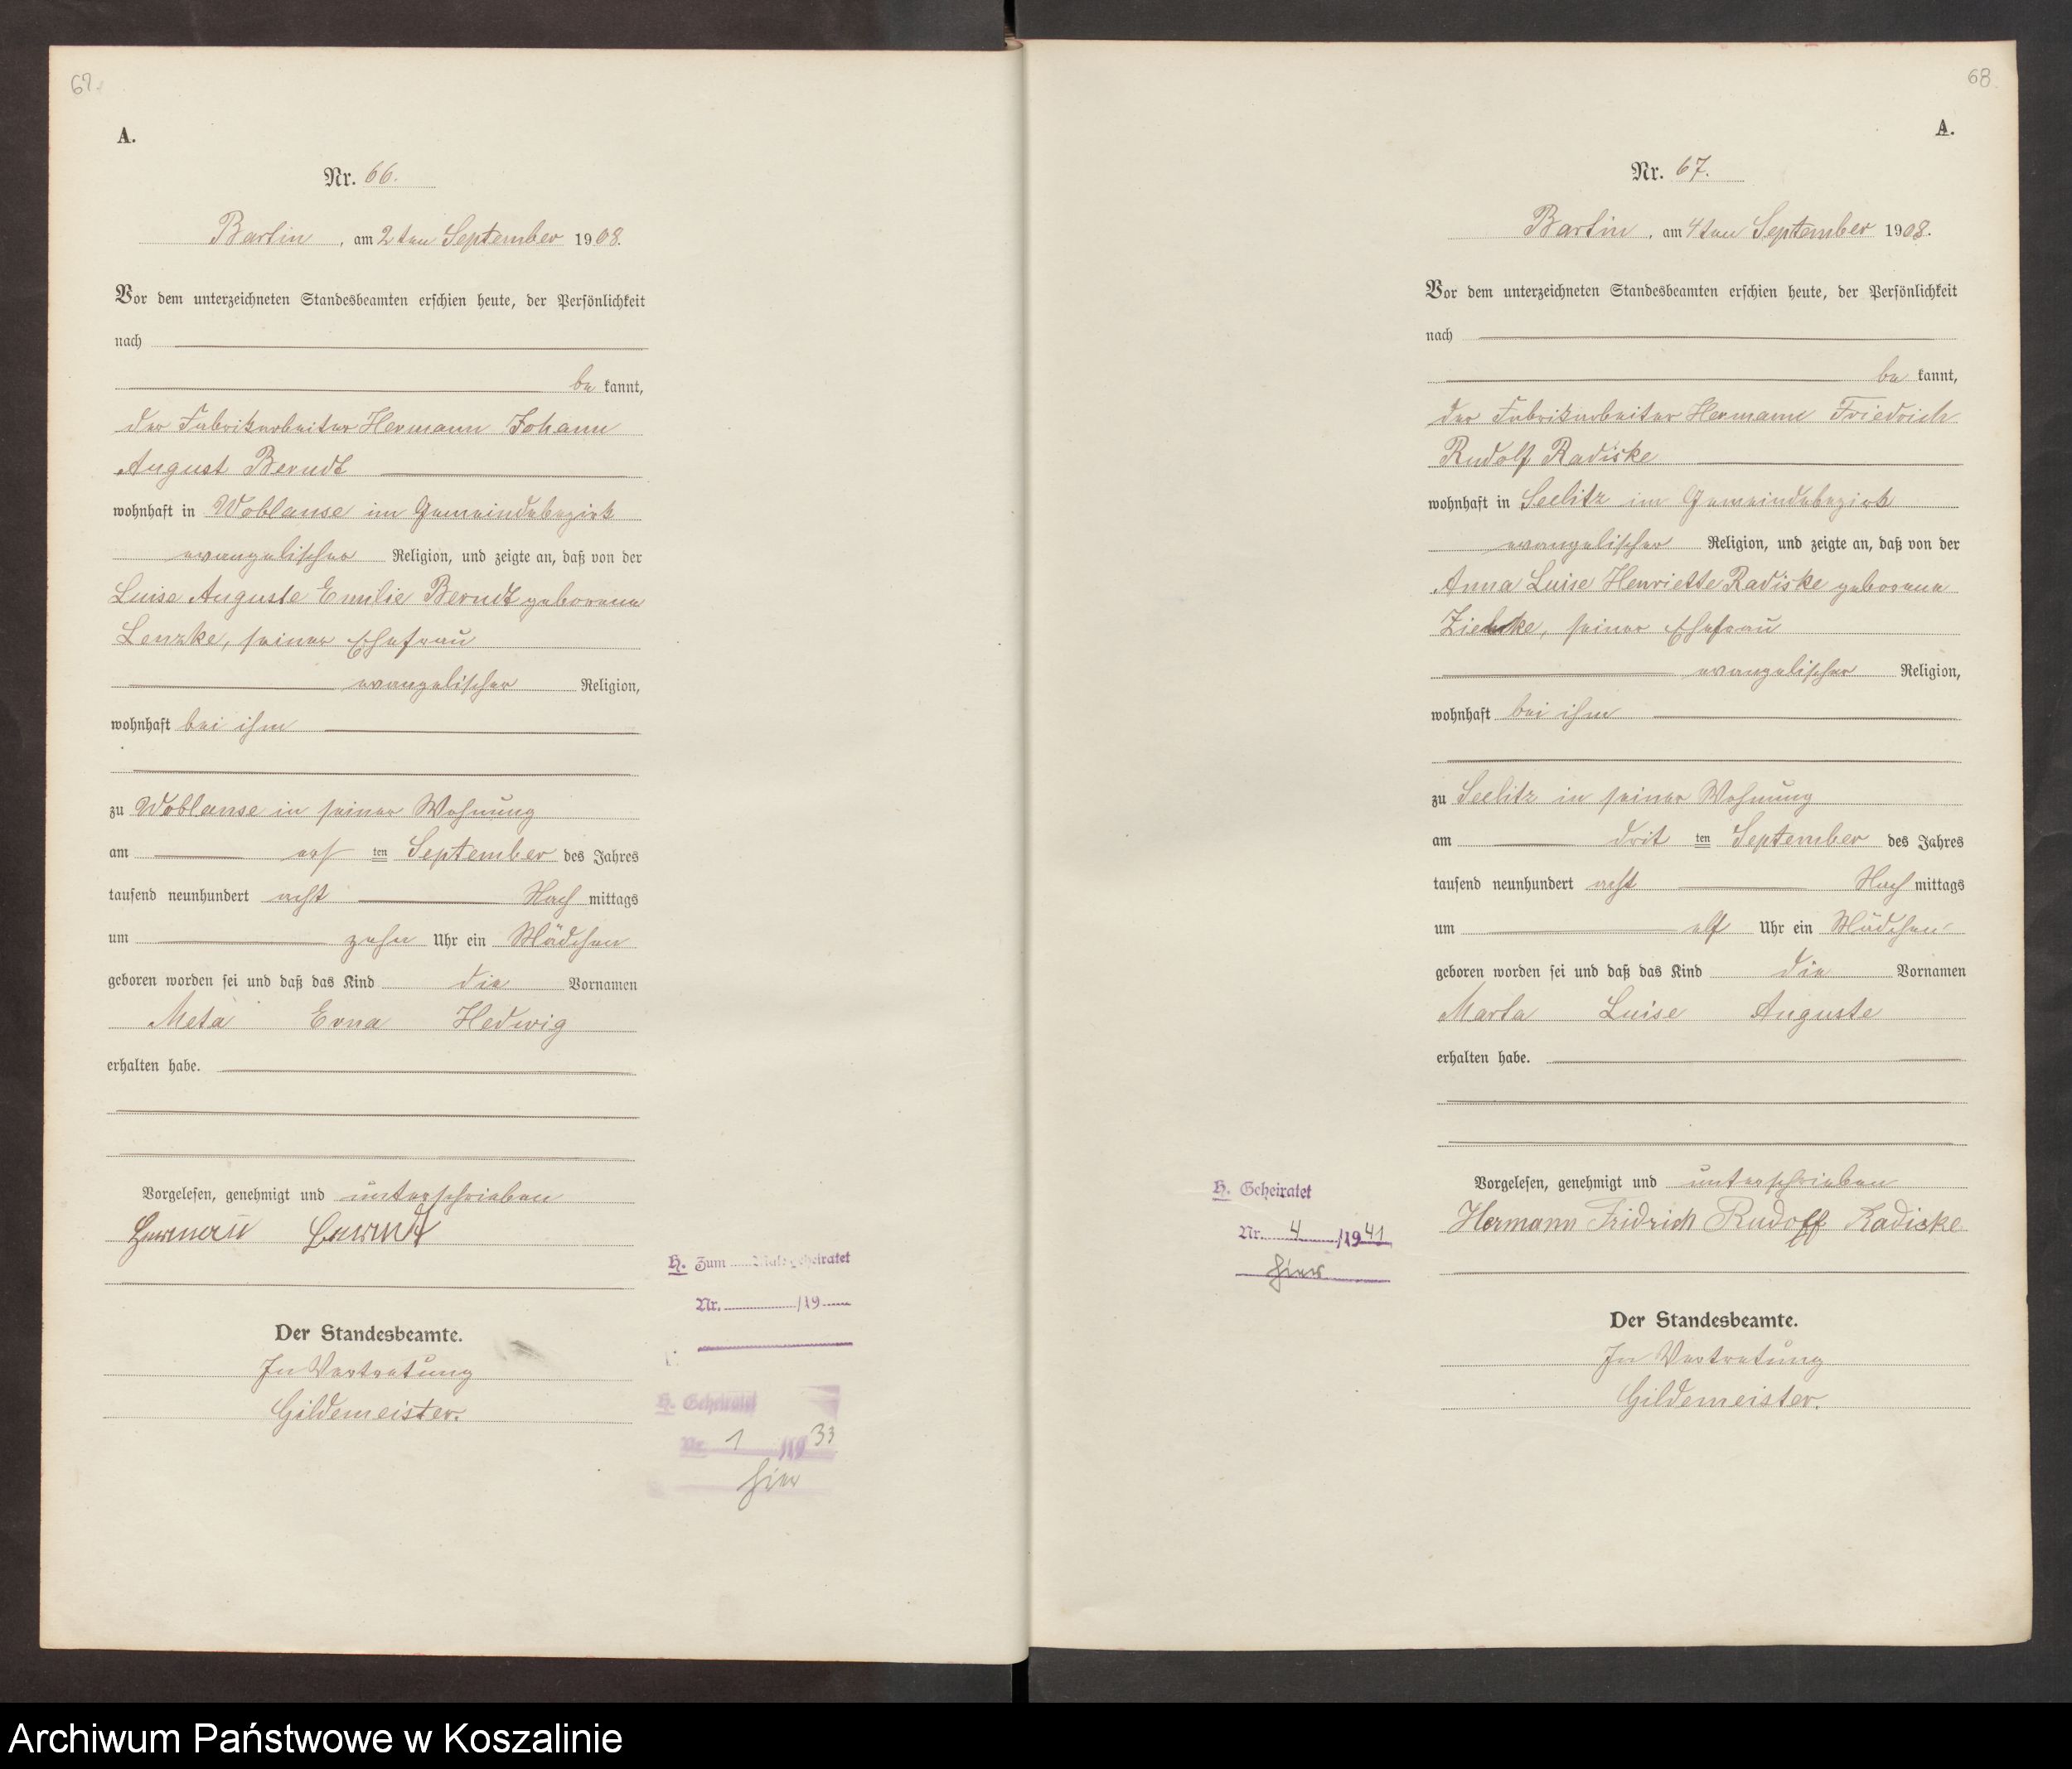 67.
A.
Nr. 66.
Bartin, am 2ten September 1908.
Vor dem unterzeichneten Standesbeamten erschien heute, der Persönlichkeit
nach
be kannt,
der Fabrikarbeiter Hermann Johann
August Berndt
wohnhaft in Woblanse im Gemeindebezirk
evangelischer Religion, und zeigte an, daß von der
Luise Auguste Emilie Berndt geborene
Lenzke, seiner Ehefrau
evangelischer Religion,
wohnhaft bei ihm
zu Woblanse in seiner Wohnung
am ersten September des Jahres
tausend neunhundert acht Nach mittags
um zehn Uhr ein Mädchen
geboren worden sei und daß das Kind die Vornamen
Meta Erna Hedwig
erhalten habe.
Vorgelesen, genehmigt und unterschrieben
Herman Bernd
Der Standesbeamte.
In Vertretung
Gildemeister.
H. Zum Male geheiratet
Nr. /19
H. Geheiratet
Nr. 1 /1933
hier
68
A.
Nr. 67.
Bartin, am 4ten September 1908.
Vor dem unterzeichneten Standesbeamten erschien heute, der Persönlichkeit
nach
be kannt,
der Fabrikarbeiter Hermann Friedrich
Rudolf Radiske
wohnhaft in Seelitz im Gemeindebezirk
evangelischer Religion, und zeigte an, daß von der
Anna Luise Henriette Radiske geborene
seiner Ehefrau
evangelischer Religion,
wohnhaft bei ihm
zu Seelitz in seiner Wohnung
am dritten September des Jahres
tausend neunhundert acht Nach mittags
um elf Uhr ein Mädchen
geboren worden sei und daß das Kind die Vornamen
Marta Luise Auguste
erhalten habe.
Vorgelesen, genehmigt und unterschrieben
Hermann Fridrich Rudolf Radiske
Der Standesbeamte.
In Vertretung
Gildemeister.
H. Geheiratet
Nr. 4 /1941
hier
Archiwum Państwowe w Koszalinie